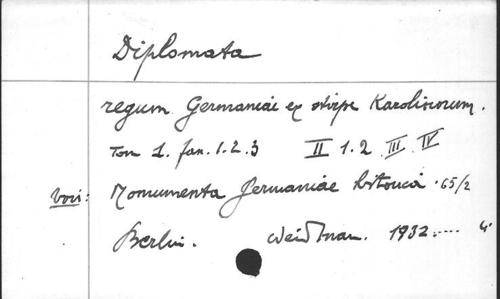 Diplomata
regum Germaniai ex stirpe Karolinorum.
Tom 1. fan. 1. 2. 3 II 1. 2 III IV
vovi: Monumenta Germaniae historica 65/2
Berlin. Weidman. 1932.....